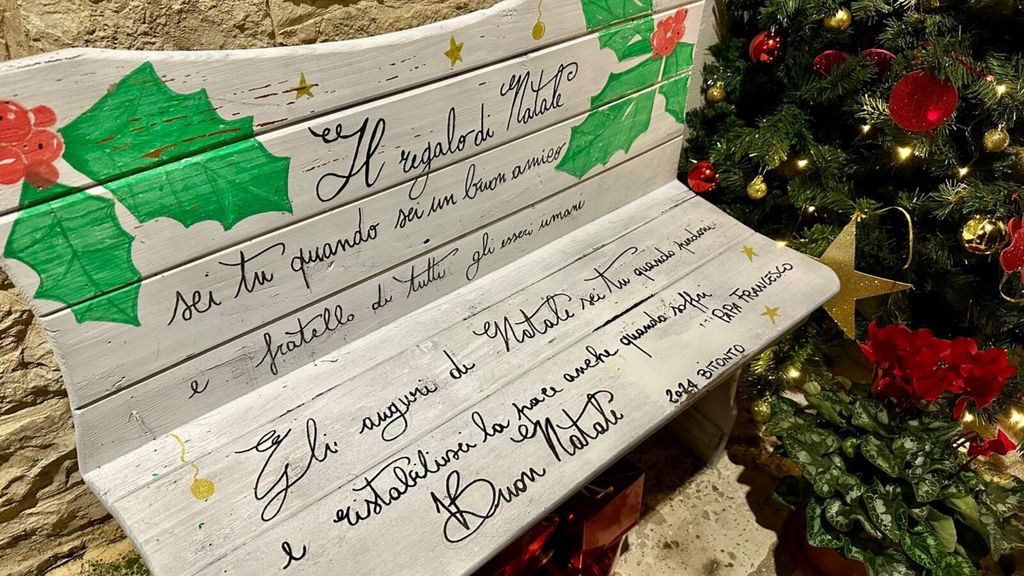 Il regalo di Natale
sei tu quando sei un buon amico
e fratello di tutti gli esseri umani
Gli auguri di Natale sei tu quando perdoni
e ristabilisci la pace anche quando soffri
... PAPA FRANCESCO
Buon Natale
2024 BITONTO